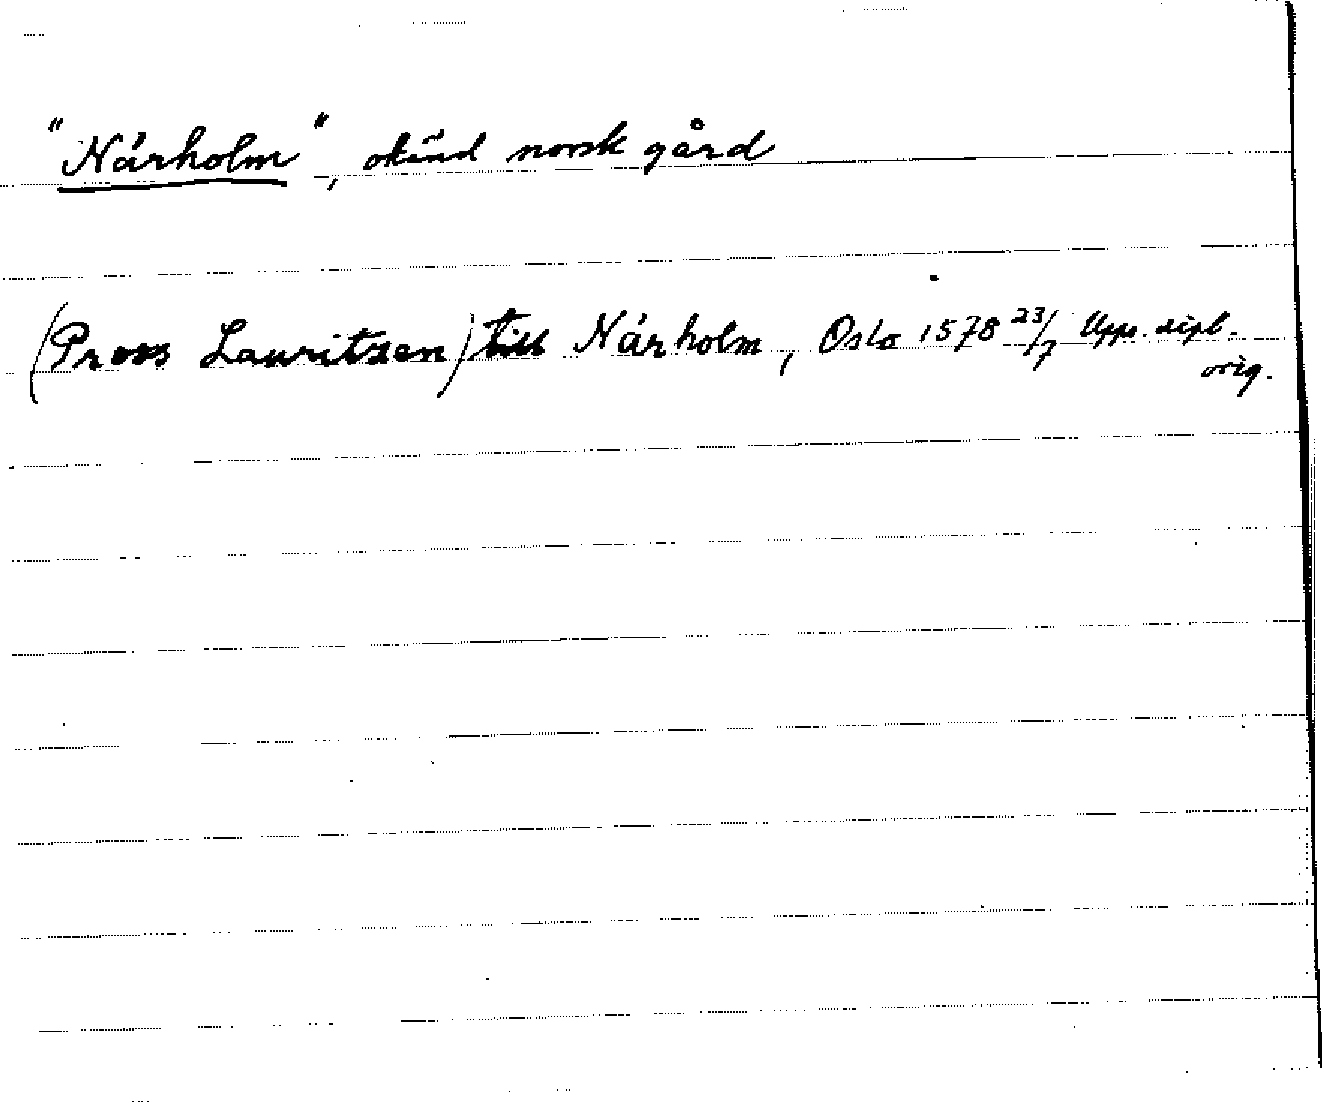 "Nárholm", okänd norsk gård
(Pross Lauritzen) till Nárholm, Oslo 1578 23/7 Upps. dipl.
orig.